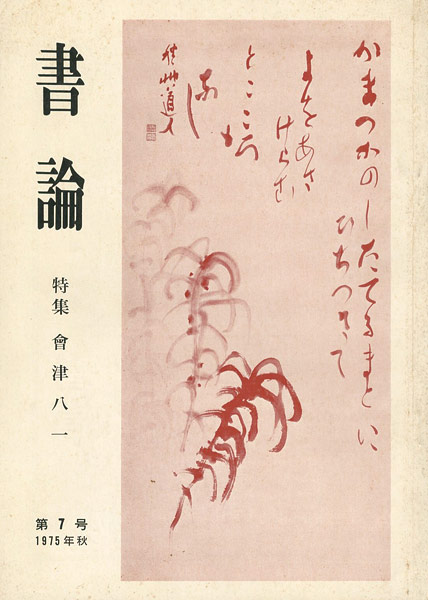 書論
特集 會津八一
第7号
1975年秋
かまつかのしたてるまとに
ひちつきて
よをあさ
けらむ
とこころ
も
なし
秋艸道人